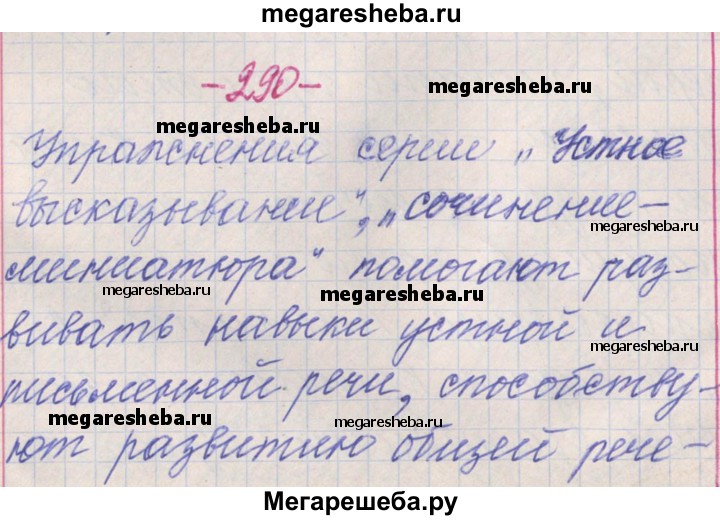 megaresheba.ru
-290-
megaresheba.ru
megaresheba.ru
Упражнения серии „Устное
высказывание", „сочинение-
megaresheba.ru
миниатюра" помогают раз-
megaresheba.ru
megaresheba.ru
вивать навыки устной и
megaresheba.ru
письменной речи, способству-
megaresheba.ru
megaresheba.ru
ют развитию общей рече-
Мегарешеба.ру